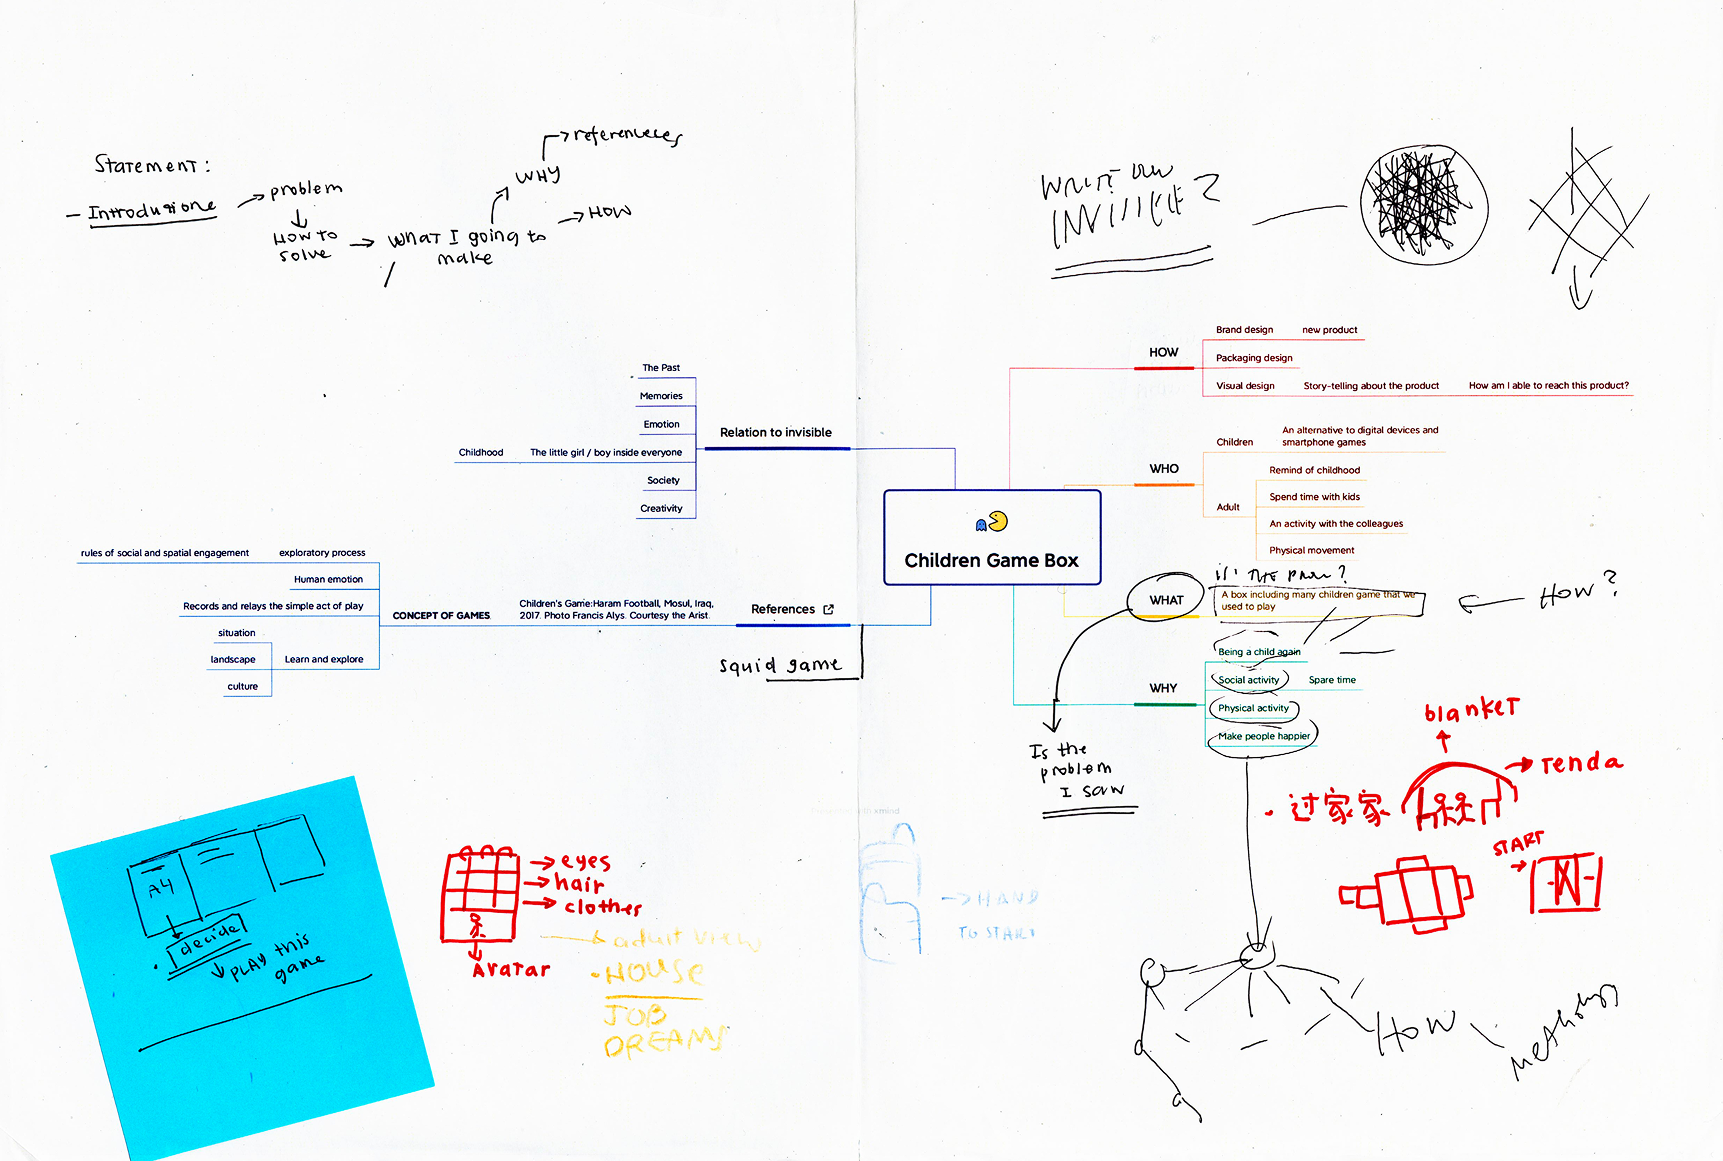 Statement :
– Introdusione
problem
How to
solve
What I going to
make
WHY
referenceces
HOW
INVISIBLE ?
The Past
Memories
Emotion
Childhood
The little girl / boy inside everyone
Society
Creativity
Relation to invisible
rules of social and spatial engagement
exploratory process
Human emotion
Records and relays the simple act of play
situation
landscape
culture
Learn and explore
CONCEPT OF GAMES
Children's Game:Haram Football, Mosul, Iraq,
2017. Photo Francis Alys. Courtesy the Arist.
References
squid game
Children Game Box
HOW
Brand design
new product
Packaging design
Visual design
Story-telling about the product
How am I able to reach this product?
WHO
Children
An alternative to digital devices and
smartphone games
Adult
Remind of childhood
Spend time with kids
An activity with the colleagues
Physical movement
WHAT
A box including many children game that we
used to play
HOW ?
WHY
Being a child again
Social activity
Spare time
Physical activity
Make people happier
Is the
problem
I saw
blanket
Tenda
• 过家家
START
A4
decide
PLAY this
game
eyes
hair
clothes
Avatar
adult view
• HOUSE
JOB
DREAMS
HAND
TO START
HOW